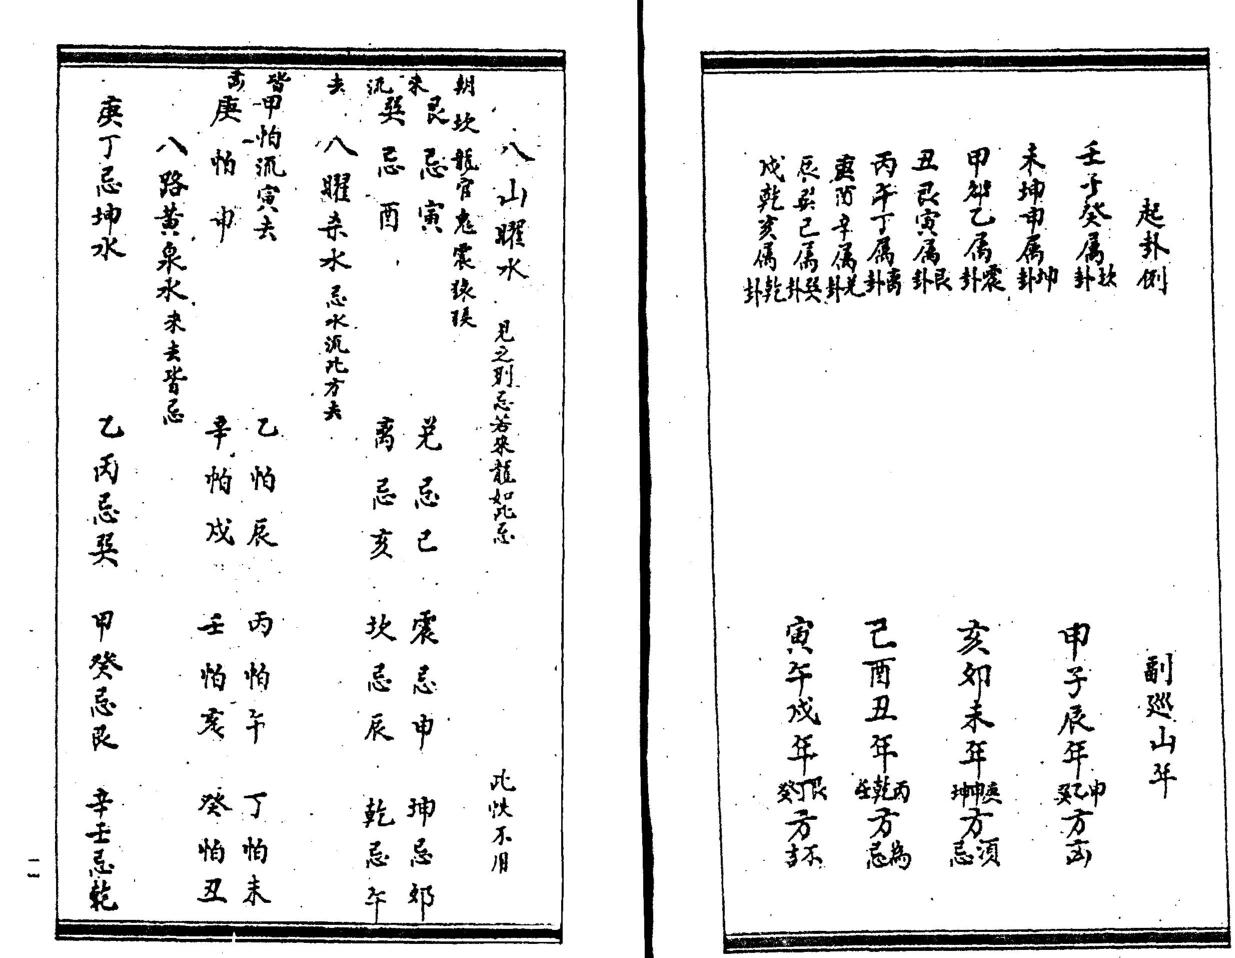 起卦例
壬子癸属坎卦
未坤申属坤卦
甲卯乙属震卦
丑艮寅属艮卦
丙午丁属离卦
庚酉辛属兑卦
辰巽巳属巽卦
戌乾亥属乾卦
副巡山年
申子辰年
方凶
亥卯未年
方须忌
巳酉丑年丙乾壬方為忌
寅午戌年艮丁癸方不吉
八山曜水 见之则忌若來龍如此忌 此怏不用
坎龍官鬼震猿猴
艮忌寅 兑忌巳 震忌申 坤忌卯
巽忌酉 离忌亥 坎忌辰 乾忌午
朝來流去
八曜杀水 忌水流此方去
甲怕流寅去 乙怕辰 丙怕午 丁怕未
庚怕申 辛怕戌 壬怕亥 癸怕丑
皆
八路黄泉水 来去皆忌
庚丁忌坤水 乙丙忌巽 甲癸忌艮 辛壬忌乾
一一